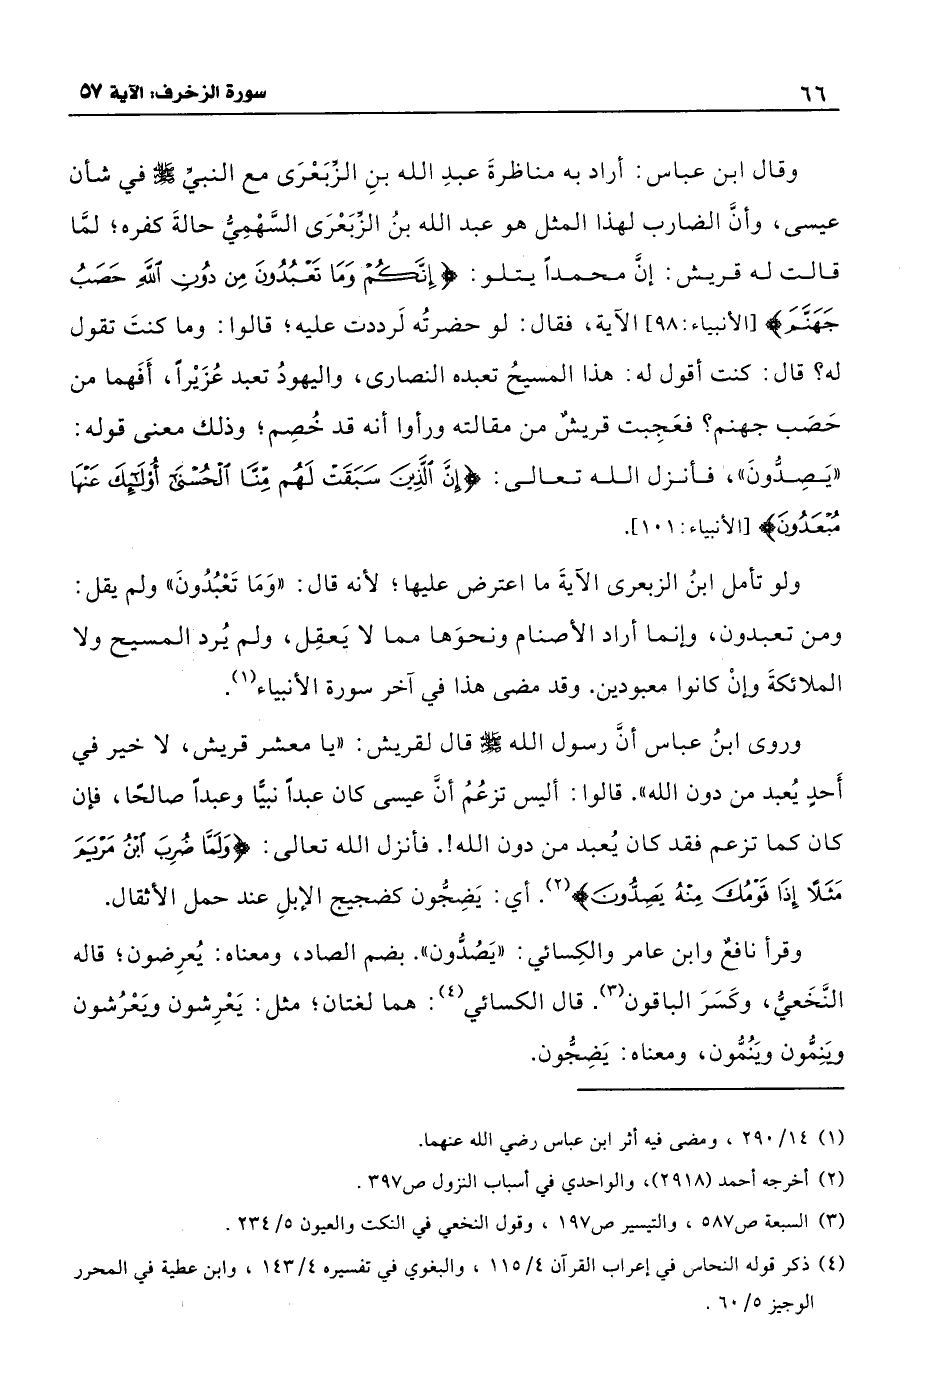 ٦٦
سورة الزخرف: الآية ٥٧
وقال ابن عباس: أراد به مناظرةَ عبدِ الله بنِ الزِّبَعْرَى مع النبيِّ ﷺ في شأن
عيسى، وأنَّ الضارب لهذا المثل هو عبد الله بنُ الزِّبَعْرَى السَّهْمِيُّ حالةَ كفره؛ لمَّا
قالت له قريش: إنَّ محمداً يتلو: ﴿إِنَّكُمْ وَمَا تَعْبُدُونَ مِن دُونِ ٱللَّهِ حَصَبُ
جَهَنَّمَ﴾ [الأنبياء:٩٨] الآية، فقال: لو حضرتُه لَرددت عليه؛ قالوا: وما كنتَ تقول
له؟ قال: كنت أقول له: هذا المسيحُ تعبده النصارى، واليهودُ تعبد عُزَيْراً، أَفَهما من
حَصَب جهنم؟ فعَجِبت قريشٌ من مقالته ورأوا أنه قد خُصِم؛ وذلك معنى قوله:
«يَصِدُّونَ»، فأنزل الله تعالى: ﴿إِنَّ ٱلَّذِينَ سَبَقَتْ لَهُم مِّنَّا ٱلْحُسْنَىٰٓ أُوْلَٰٓئِكَ عَنْهَا
مُبْعَدُونَ﴾ [الأنبياء:١٠١].
ولو تأمل ابنُ الزبعرى الآيةَ ما اعترض عليها؛ لأنه قال: «وَمَا تَعْبُدُونَ» ولم يقل:
ومن تعبدون، وإنما أراد الأصنام ونحوَها مما لا يَعقِل، ولم يُرد المسيح ولا
الملائكةَ وإنْ كانوا معبودين. وقد مضى هذا في آخر سورة الأنبياء(١).
وروى ابنُ عباس أنَّ رسول الله ﷺ قال لقريش: «يا معشر قريش، لا خير في
أَحدٍ يُعبد من دون الله». قالوا: أليس تزعُمُ أنَّ عيسى كان عبداً نبيًّا وعبداً صالحًا، فإن
كان كما تزعم فقد كان يُعبد من دون الله!. فأنزل الله تعالى: ﴿وَلَمَّا ضُرِبَ ٱبْنُ مَرْيَمَ
مَثَلًا إِذَا قَوْمُكَ مِنْهُ يَصِدُّونَ﴾(٢). أي: يَضِجُّون كضجيج الإبلِ عند حمل الأثقال.
وقرأ نافعٌ وابن عامر والكِسائي: «يَصُدُّون». بضم الصاد، ومعناه: يُعرِضون؛ قاله
النَّخَعيُّ، وكَسَرَ الباقون(٣). قال الكسائي(٤): هما لغتان؛ مثل: يَعْرِشون ويَعْرُشون
ويَنِمُّون ويَنُمُّون، ومعناه: يَضِجُّون.
(١) ١٤/ ٢٩٠ ، ومضى فيه أثر ابن عباس رضي الله عنهما.
(٢) أخرجه أحمد (٢٩١٨)، والواحدي في أسباب النزول ص٣٩٧ .
(٣) السبعة ص٥٨٧ ، والتيسير ص١٩٧ ، وقول النخعي في النكت والعيون ٥/ ٢٣٤ .
(٤) ذكر قوله النحاس في إعراب القرآن ٤/ ١١٥ ، والبغوي في تفسيره ٤/ ١٤٣ ، وابن عطية في المحرر
الوجيز ٥/ ٦٠ .